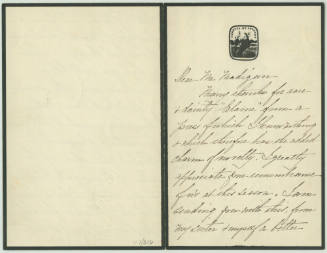 Dear Mr Madigan
Many thanks for rare
& dainty "Elaine" from a
press of which I knew nothing
& which therefore has the added
charm of novelty. I greatly
appreciate your remembrance
of us at this season. I am
sending you with this, from
my sister & myself a little